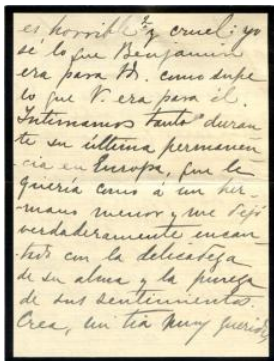 es horrible y cruel: yo
sé lo que Benjamin
era para V. como supe
lo que V. era para él.
Intimamos tanto duran
te su última permanen
cia en Europa, que le
quería como á un her-
mano menor y me dejó
verdaderamente encan-
tado con la delicadeza
de su alma y la pureza
de sus sentimientos.
Crea, mi tia muy querida,